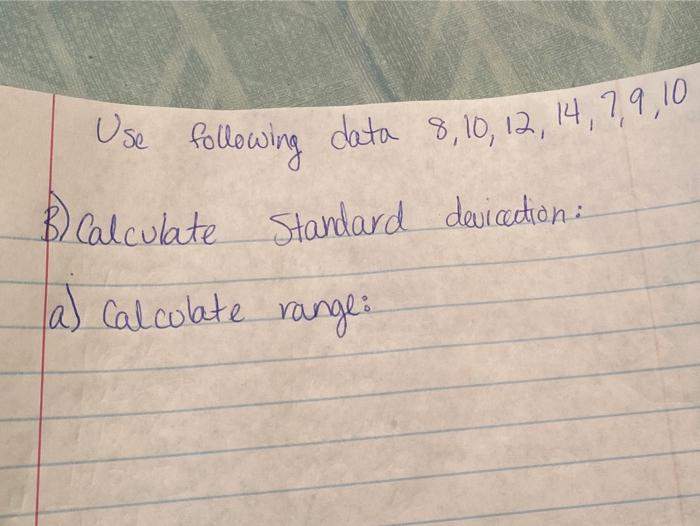 Use following data 8, 10, 12, 14, 7, 9, 10
B) Calculate Standard deviation:
a) Calculate range: